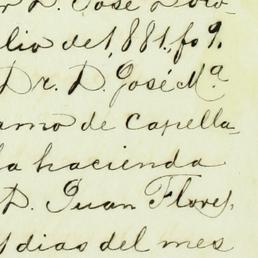 r D. José Doro-
lio de 1,881, fo 9.
Dr. D. José Mª
amo de Capella-
la hacienda
D. Juan Flores,
s dias del mes